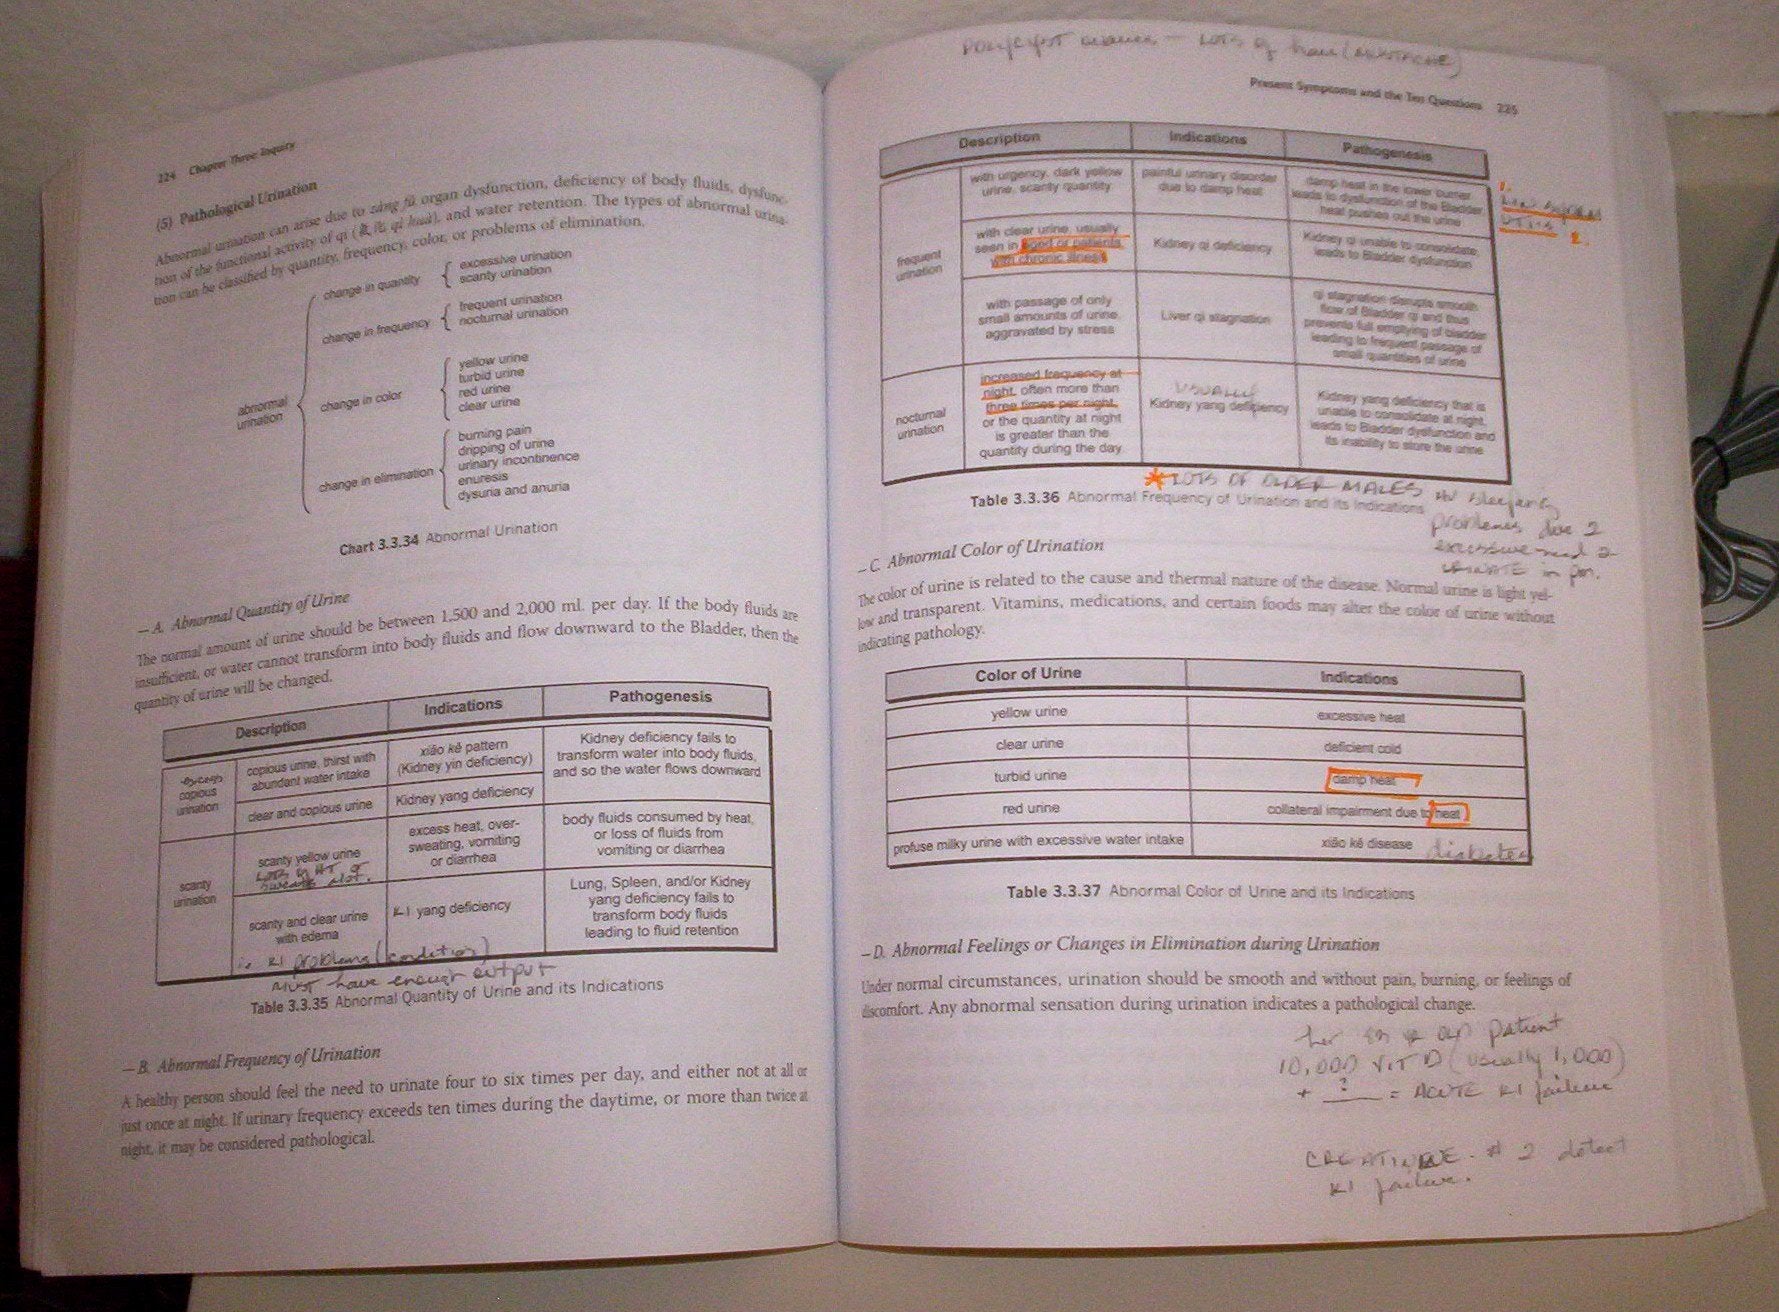 224 Chapter Three: Inquiry
(5) Pathological Urination
Abnormal urination can arise due to zàng fǔ organ dysfunction, deficiency of body fluids, dysfunc-
tion of the functional activity of qì (氣化 qì huà), and water retention. The types of abnormal urina-
tion can be classified by quantity, frequency, color, or problems of elimination.
abnormal
urination
change in quantity
excessive urination
scanty urination
change in frequency
frequent urination
nocturnal urination
change in color
yellow urine
turbid urine
red urine
clear urine
change in elimination
burning pain
dripping of urine
urinary incontinence
enuresis
dysuria and anuria
Chart 3.3.34 Abnormal Urination
—A. Abnormal Quantity of Urine
The normal amount of urine should be between 1,500 and 2,000 ml. per day. If the body fluids are
insufficient, or water cannot transform into body fluids and flow downward to the Bladder, then the
quantity of urine will be changed.
Description
Indications
Pathogenesis
copious
urination
copious urine, thirst with
abundant water intake
xiāo kě pattern
(Kidney yin deficiency)
Kidney deficiency fails to
transform water into body fluids,
and so the water flows downward
clear and copious urine
Kidney yang deficiency
scanty
urination
scanty yellow urine
LOTS of HT
sweats alot.
excess heat, over-
sweating, vomiting
or diarrhea
body fluids consumed by heat,
or loss of fluids from
vomiting or diarrhea
scanty and clear urine
with edema
KI yang deficiency
Lung, Spleen, and/or Kidney
yang deficiency fails to
transform body fluids
leading to fluid retention
KI problems (condition)
MUST have enough output
Table 3.3.35 Abnormal Quantity of Urine and its Indications
—B. Abnormal Frequency of Urination
A healthy person should feel the need to urinate four to six times per day, and either not at all or
just once at night. If urinary frequency exceeds ten times during the daytime, or more than twice at
night, it may be considered pathological.
LOTS of hair (MUSTACHE)
Present Symptoms and the Ten Questions 225
Description
Indications
Pathogenesis
frequent
urination
with urgency, dark yellow
urine, scanty quantity
painful urinary disorder
due to damp heat
damp heat in the lower burner
leads to dysfunction of the Bladder,
heat pushes out the urine
with clear urine, usually
seen in aged or patients
with chronic illness
Kidney qi deficiency
Kidney qi unable to consolidate
leads to Bladder dysfunction
with passage of only
small amounts of urine,
aggravated by stress
Liver qi stagnation
qi stagnation disrupts smooth
flow of Bladder qi and thus
prevents full emptying of bladder
leading to frequent passage of
small quantities of urine
nocturnal
urination
increased frequency at
night, often more than
three times per night,
or the quantity at night
is greater than the
quantity during the day
USUALLY
Kidney yang deficiency
Kidney yang deficiency that is
unable to consolidate at night,
leads to Bladder dysfunction and
its inability to store the urine
1.
UTI's 2.
*LOTS OF OLDER MALES HV sleeping
problems due 2
excessive need 2
URINATE in pm.
Table 3.3.36 Abnormal Frequency of Urination and its Indications
—C. Abnormal Color of Urination
The color of urine is related to the cause and thermal nature of the disease. Normal urine is light yel-
low and transparent. Vitamins, medications, and certain foods may alter the color of urine without
indicating pathology.
Color of Urine
Indications
yellow urine
excessive heat
clear urine
deficient cold
turbid urine
damp heat
red urine
collateral impairment due to heat
profuse milky urine with excessive water intake
xiāo kě disease diabetes
Table 3.3.37 Abnormal Color of Urine and its Indications
—D. Abnormal Feelings or Changes in Elimination during Urination
Under normal circumstances, urination should be smooth and without pain, burning, or feelings of
discomfort. Any abnormal sensation during urination indicates a pathological change.
patient
10,000 VIT D (usually 1,000)
+ ? = ACUTE KI failure
CREATININE. # 2 detect
KI failure.